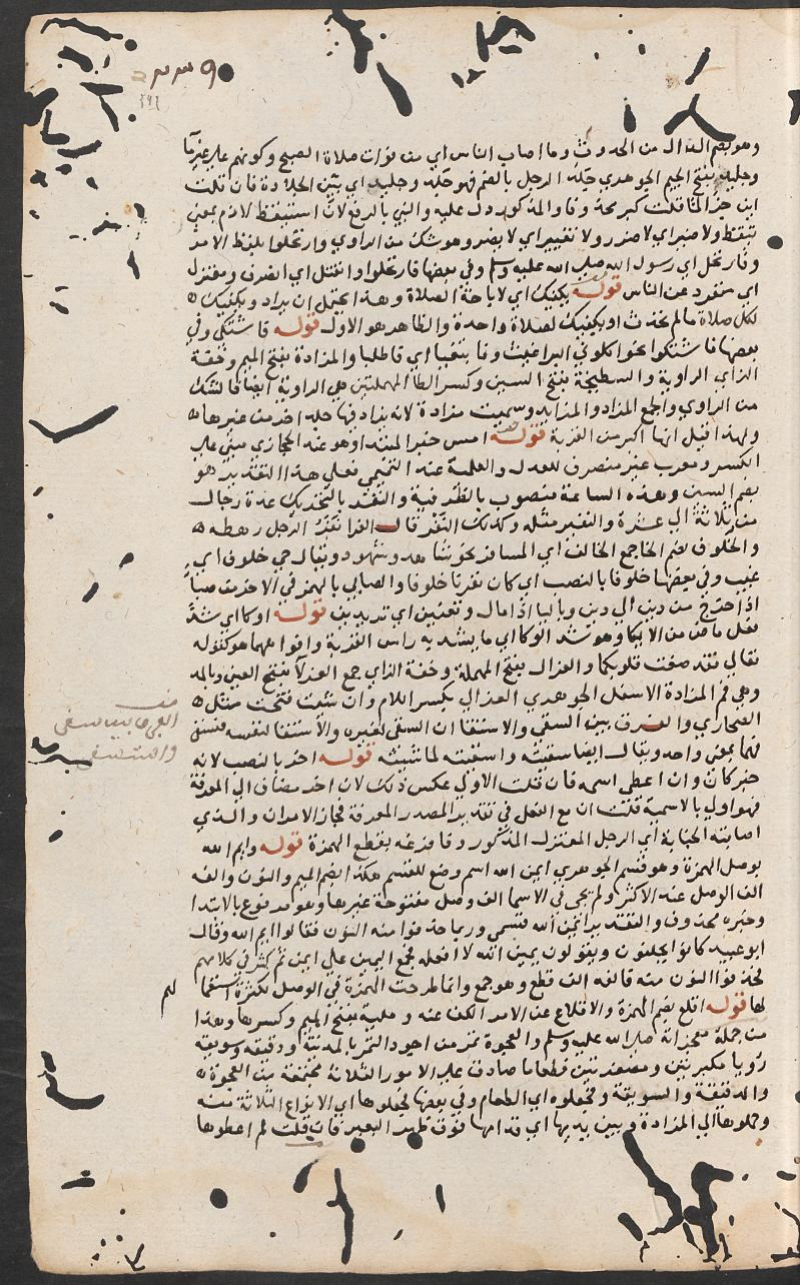 ٣٣٩
وهو بضم الدال من الحدوث وما اصاب الناس اي من فوات صلاة الصبح وكونهم على غير ما
وجليد بفتح الجيم الجوهري جلد الرجل بالضم فهو جلد وجليد اي بين الجلادة فان قلت
اين جزا لما قلت كبر محذوفا والمذكور دل عليه والنبي بالرفع لان استيقظ لازم بمعنى
تيقظ ولا ضير اي لا ضرر ولا تغيير اي لا يضر وهو شك من الراوي وارتحلوا بلفظ الامر
وفارتحل اي رسول الله صلى الله عليه وسلم وفي بعضها فارتحلوا وانفتل اي انصرف ومعتزل
اي منفرد عن الناس قوله يكفيك اي لاباحة الصلاة وهذا يحتمل ان يراد ويكفيك
لكل صلاة ما لم تحدث او يكفيك لصلاة واحدة والظاهر هو الاول قوله فاشتكى وفي
بعضها فاشتكوا نحو اكلوني البراغيث وفابتغيا اي فاطلبا والمزادة بفتح الميم وخفة
الزاي الراوية والسطيحة بفتح السين وكسر الطا المهملتين هي الراوية ايضا فالشك
من الراوي والجمع المزاد والمزايد وسميت مزادة لانه يزاد فيها جلد اخر من غيرها
ولهذا قيل انها اكبر من القربة قوله امس خبر المبتدا وهو عند الحجازي مبني على
الكسر ومعرب غير منصرف للعدل والعلمية عند التميمي فعلى هذا التقدير هو
بضم السين وهذه الساعة منصوب بالظرفية والنفر بالتحريك عدة رجال
من ثلاثة الي عشرة والنفير مثله وكذلك النفر قال الفرا نفر الرجل رهطه
والخلوف بضم الخا جمع الخالف اي المسافر نحو شاهد وشهود ويقال حي خلوف اي
غيب وفي بعضها خلوفا بالنصب اي كان نفرنا خلوفا والصابي بالهمز في الاخر من صبا
اذا خرج من دين الي دين وباليا اذا مال وتعنين اي تريدين قوله اوكا اي شد
فعل ماض من الايكا وهو شد الوكا اي ما يشد به راس القربة وافواههما هو كقوله
تعالي فقد صغت قلوبكما والعزال بفتح المهملة وخفة الزاي جمع العزلا بفتح العين وبالمد
وهي فم المزادة الاسفل الجوهري العزالي بكسر اللام وان شئت فتحت مثل
الصحاري والفرق بين السقي والاستقا ان السقي لغيره والاستقا لنفسه
فهما بمعنى واحد ويقال ايضا سقيته واسقيته لماشيته قوله اخر بالنصب لانه
خبر كان وان اعطي اسمه فان قلت الاولي عكس ذلك لان اخر مضاف الي المعرفة
فهو اولي بالاسمية قلت ان مع الفعل في تقدير المصدر المعرفة فجاز الامران والذي
اصابته الجنابة اي الرجل المعتزل المذكور وفافرغه بقطع الهمزة قوله وايم الله
بوصل الهمزة وهو قسم الجوهري ايمن الله اسم وضع للقسم هكذا بضم الميم والنون والفه
الف الوصل عند الاكثر ولم يجي في الاسما الف وصل مفتوحة غيرها وهو مرفوع بالابتدا
وخبره محذوف والتقدير ايمن الله قسمي وربما حذفوا منه النون فقالوا ايم الله وقال
ابو عبيد كانوا يحلفون ويقولون يمين الله لا افعله فجمع اليمين علي ايمن ثم كثر في كلامهم
فحذفوا النون منه فالفه الف قطع وهو جمع وانما طرحت الهمزة في الوصل لكثرة استعما
لهم
لها قوله اقلع بضم الهمزة والاقلاع عن الامر الكف عنه وملية بفتح الميم وكسرها وهذا
من جملة معجزاته صلى الله عليه وسلم والعجوة تمر من اجود التمر بالمدينة ودقيقه وسويقه
رويا مكبرتين ومصغرتين وطعاما صادق علي الامور الثلاثة مجتمعة من العجوة
والدقيقة والسويقة وفجعلوه اي الطعام وفي بعضها فجعلوها اي الانواع الثلاثة منه
وحملوها الي المزادة وبين يديها اي قدامها فوق ظهر البعير فان قلت لم اعطوها